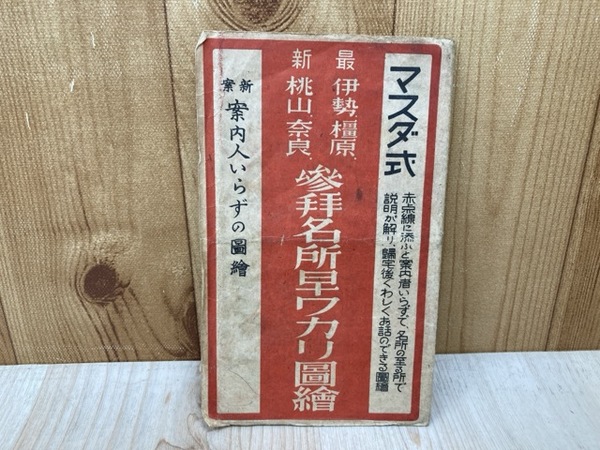 マスダ式
赤宗線に添ふと案内者いらずで、名所の至る所で
説明が解り、歸宅後くわしくお話のできる圖繪
最新
伊勢、橿原、
桃山、奈良、
參拜名所早ワカリ圖繪
新案
案内人いらずの圖繪